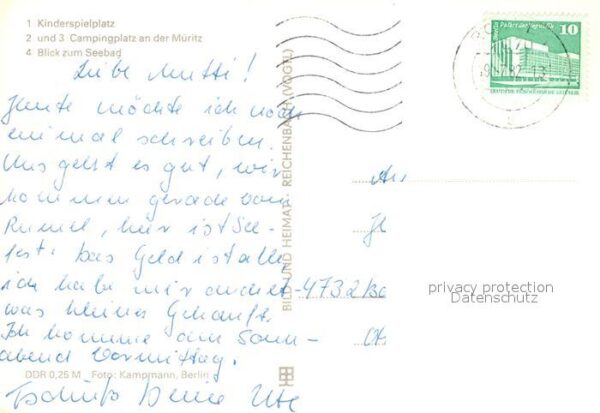 1 Kinderspielplatz
2 und 3 Campingplatz an der Müritz
4 Blick zum Seebad
Liebe Mutti!
Heute möchte ich noch
einmal schreiben.
Uns geht es gut, wir
kommen gerade vom
Rummel, hier ist See-
fest. Das Geld ist alle
ich habe mir
was kleines gekauft.
Ich komme am Sonn-
abend Vormittag.
Tschüß Deine Ute
DDR 0,25 M Foto: Kampmann, Berlin
BILD UND HEIMAT · REICHENBACH (VOGTL)
10
An
4732
privacy protection
Datenschutz